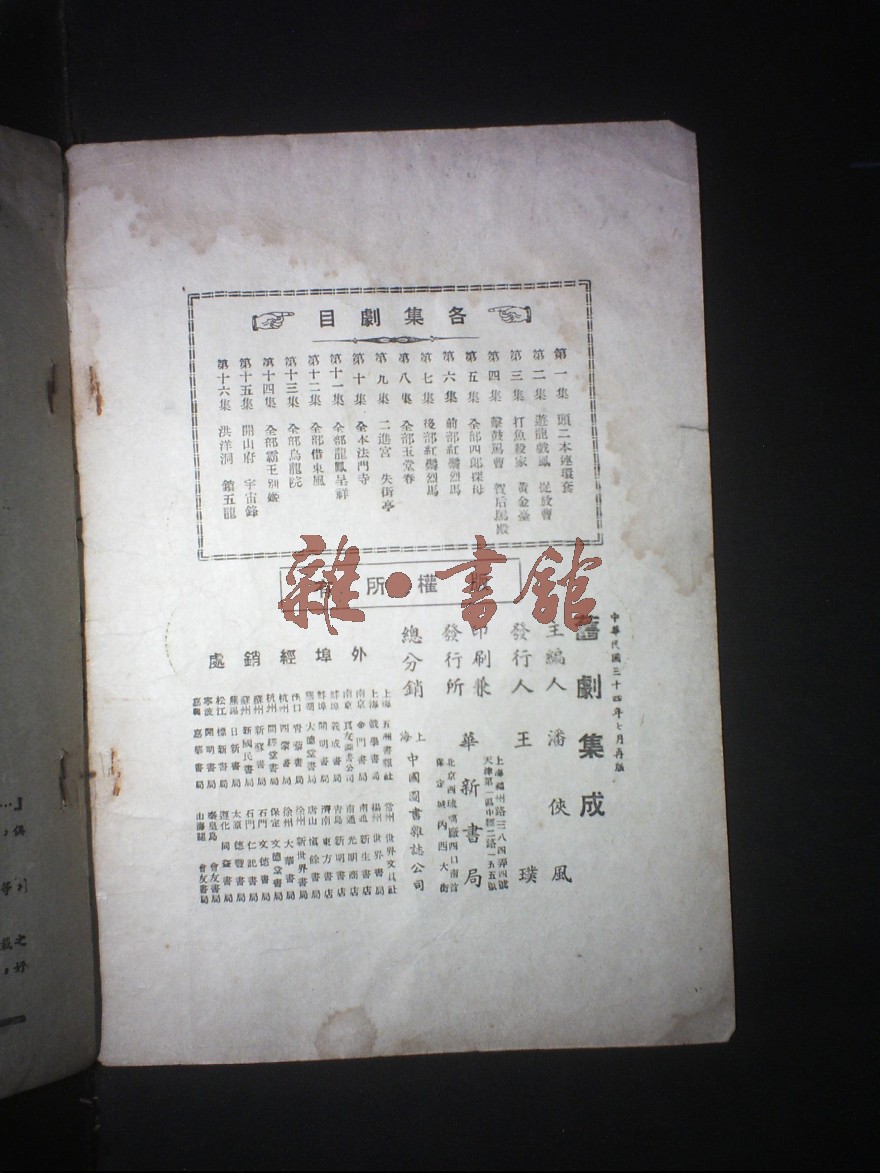 各集劇目
第一集 頭二本連環套
第二集 遊龍戲鳳 捉放曹
第三集 打魚殺家 黃金臺
第四集 擊鼓罵曹 賀后罵殿
第五集 全部四郎探母
第六集 前部紅鬃烈馬
第七集 後部紅鬃烈馬
第八集 全部玉堂春
第九集 二進宮 失街亭
第十集 全本法門寺
第十一集 全部龍鳳呈祥
第十二集 全部借東風
第十三集 全部烏龍院
第十四集 全部霸王別姬
第十五集 開山府 宇宙鋒
第十六集 洪洋洞 鎖五龍
版權所有
雜·書舘
中華民國三十四年七月再版
舊劇集成
主編人 潘俠風
發行人 王璞
印刷兼發行所 華新書局
上海福州路三八四弄四號
天津第一區中樞二路一五五號
北京西琉璃廠西口南首
保定城內西大街
總分銷 上海 中國圖書雜誌公司
外埠經銷處
上海 五洲書報社
上海 戲學書局
南京 金門書局
蚌埠 義成書局
蚌埠 開明書局
大德堂書局
漢口 青葉書局
杭州 問經堂書局
蘇州 新蘇書局
蘇州 新國民書局
無錫 日新書局
松江 標新書局
寧波 開明書局
嘉興 嘉華書局
常州 世界文具社
揚州 世界書局
南通 新生書店
南通 光明商店
青島 新明書店
濟南 東方書店
唐山 富餘書局
徐州 新世界書局
徐州 大華書局
保定 文德堂書局
石門 文德書局
石門 仁記書局
太原 德聲書局
遵化 同益書局
秦皇島 會友書局
山海關 會友書局